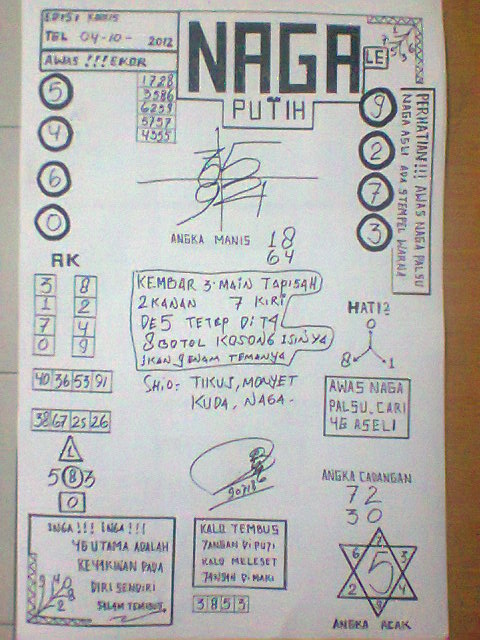 EDISI KAMIS
TEL 04-10- 2012
AWAS !!! EKOR
NAGA
PUTIH
LE
1728
3586
6259
5757
4555
5
4
6
0
9
2
7
3
PERHATIAN!!! AWAS NAGA PALSU
NAGA ASLI ADA STEMPEL WARNA
ANGKA MANIS 18
64
RK
3 8
1 2
7 4
0 9
40 36 53 91
38 67 25 26
1
5 8 3
0
KEMBAR 3 MAIN TAPISAH
2 KANAN 7 KIRI
DE5 TETEP DIT4
8 BOTOL KOSONG ISINYA
IKAN 9 ENAM TEMANYA
SHIO: TIKUS, MONYET
KUDA, NAGA.
HATI2
0
8 1
AWAS NAGA
PALSU, CARI
YG ASELI
ANGKA CADANGAN
72
30
INGA!!! INGA!!!
YG UTAMA ADALAH
KEYAKINAN PADA
DIRI SENDIRI
SALAM TEMBUS
KALO TEMBUS
JANGAN DI PUJI
KALO MELESET
JANGAN DI MAKI
3853
5
ANGKA ACAK